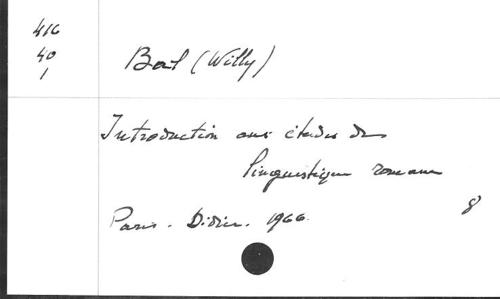 416
40
1
Bal (Willy)
Introduction aux études de
linguistique romane
8
Paris. Didier. 1966